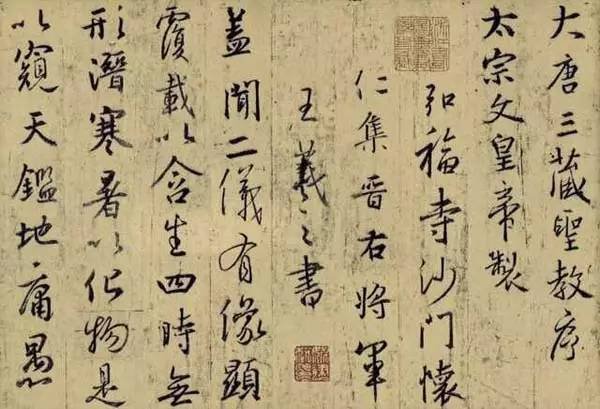 大唐三藏聖教序
太宗文皇帝製
弘福寺沙門懷
仁集晋右將軍
王羲之書
蓋聞二儀有像顯
覆載以含生四時無
形潛寒暑以化物是
以窺天鑑地庸愚